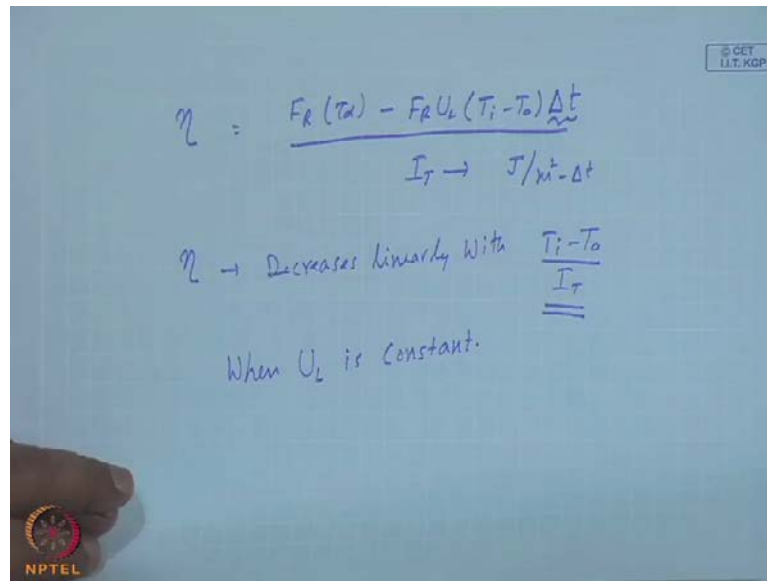 © CET
I.I.T. KGP
η = F_R (τα) − F_R U_L (T_i − T_a) Δt
I_T → J/m² - Δt
η → Decreases linearly With T_i − T_a
I_T
When U_L is constant.
NPTEL